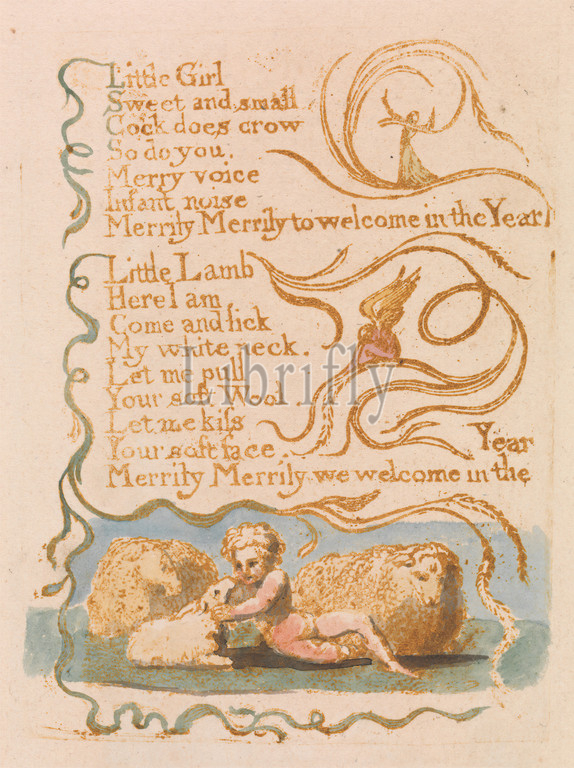 Little Girl
Sweet and small
Cock does crow
So do you.
Merry voice
Infant noise
Merrily Merrily to welcome in the Year
Little Lamb
Here I am,
Come and lick
My white neck.
Let me pull
Your soft Wool.
Let me kiſs
Your soft face.
Year
Merrily Merrily we welcome in the
Librifly